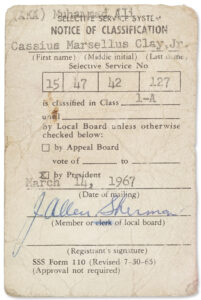 (AKA) Muhammad Ali
SELECTIVE SERVICE SYSTEM
NOTICE OF CLASSIFICATION
Cassius Marsellus Clay, Jr.
(First name) (Middle initial) (Last name)
Selective Service No
15 47 42 127
is classified in Class 1-A
until
by Local Board unless otherwise
checked below:
by Appeal Board
vote of to
X by President
March 14, 1967
(Date of mailing)
J Allen Sherman
(Member or clerk of local board)
(Registrant's signature)
SSS Form 110 (Revised 7-50-65)
(Approval not required)